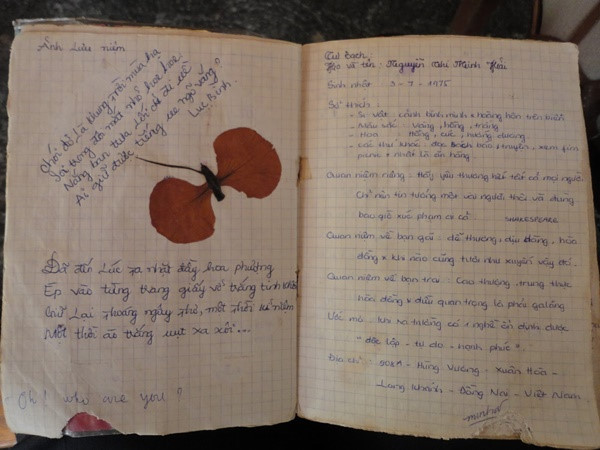 Ảnh Lưu niệm
Chói đỏ Là khung trời mùa hạ
Nắng vẫn tựa Lối đi
Ai giữ được tiếng ve ngỡ vắng?
Lục Bình
Đã đến Lúc ra nhặt đầy hoa phượng
Ép vào từng trang giấy vở trắng tinh khôi
Giữ Lại khoảng ngày thơ, một thời kỉ niệm
Một thời áo trắng vụt xa xôi...
Oh! who are you?
Tự Bạch
Họ và tên: Nguyễn Thị Minh Hải
Sinh nhật 3-7-1975
Sở thích:
- Sự vật: cảnh bình minh & hoàng hôn trên biển
- Màu sắc: Vàng, hồng, trắng
- Hoa: Hồng, cúc, hướng dương
- Các thú khác: đọc sách báo, truyện, xem tim
phim & nhất là ăn hàng
Quan niệm riêng: Hãy yêu thương hết tất cả mọi người.
Chỉ nên tin tưởng một vài người thôi và đừng
bao giờ xúc phạm ai cả
SHAKESPEARE
Quan niệm về bạn gái: dễ thương, dịu dàng, hòa
đồng & khi nào cũng tươi như xuyến vậy đó.
Quan niệm về bạn trai: Cao thượng, trung thực
hòa đồng & điều quan trọng là phải galăng
Ước mơ: khi ra trường có 1 nghề ổn định được
"độc lập - tự do - hạnh phúc".
Địa chỉ: Hùng Vương - Xuân Hòa -
Long Khánh - Đồng Nai - Việt Nam